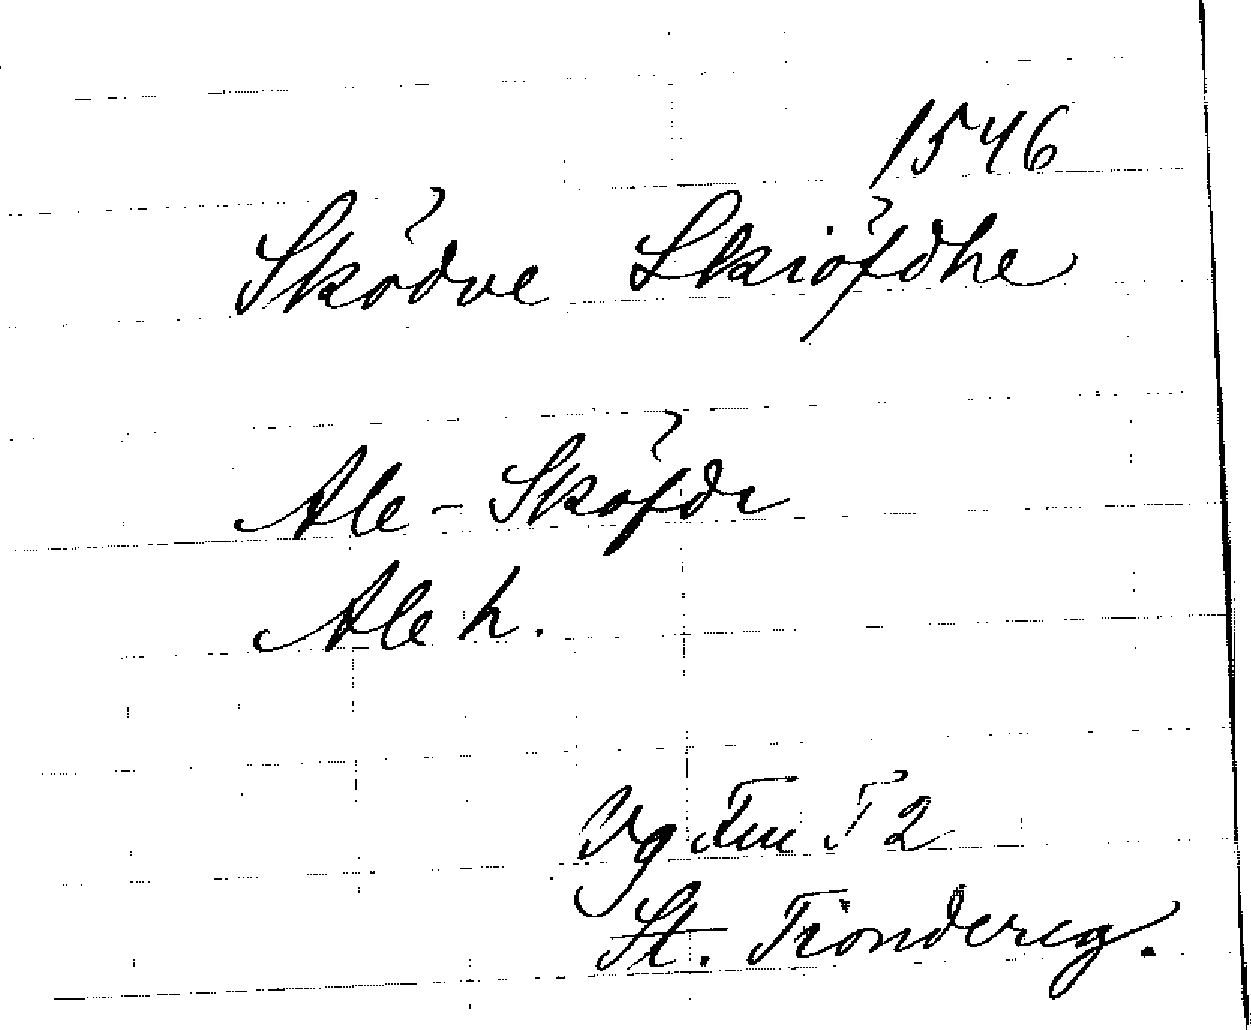 1546
Sködve Skiöfdhe
Ale-Sköfde
Ale h.
Vg Fru T 2
St. Tiondereg.